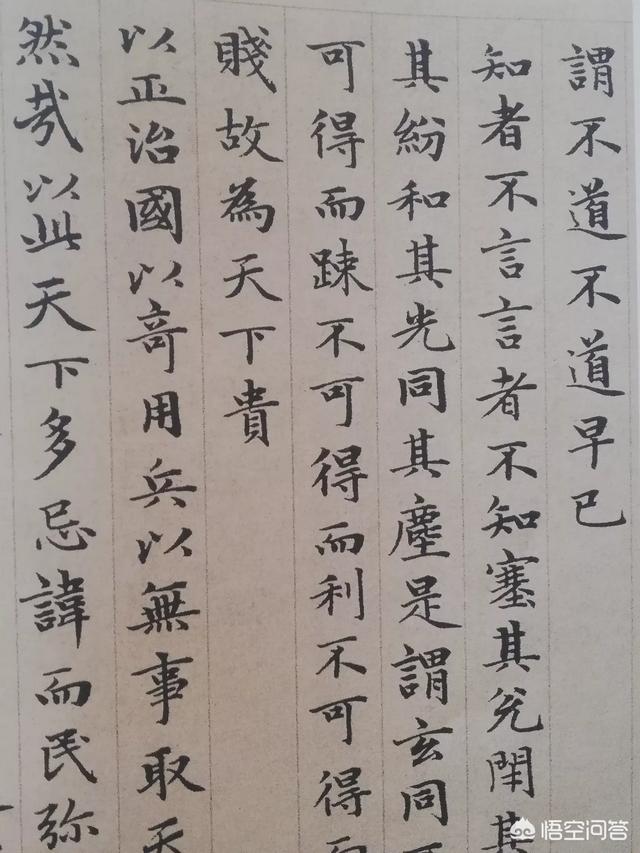 謂不道不道早已
知者不言言者不知塞其兊閇其
其紛和其光同其塵是謂玄同
可得而踈不可得而利不可得而
賤故為天下貴
以正治國以竒用兵以無事取天
然哉以此天下多忌諱而民弥
悟空问答